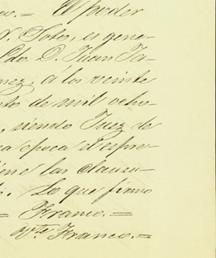 El poder
Solo, es gene-
Ldo D. Juan Ta-
nez, a los veinte
nto de mil ocho-
, siendo Juez de
ca época el espre-
iene las clausu-
Lo que firmo
= Franco. =
Vto. Franco. =